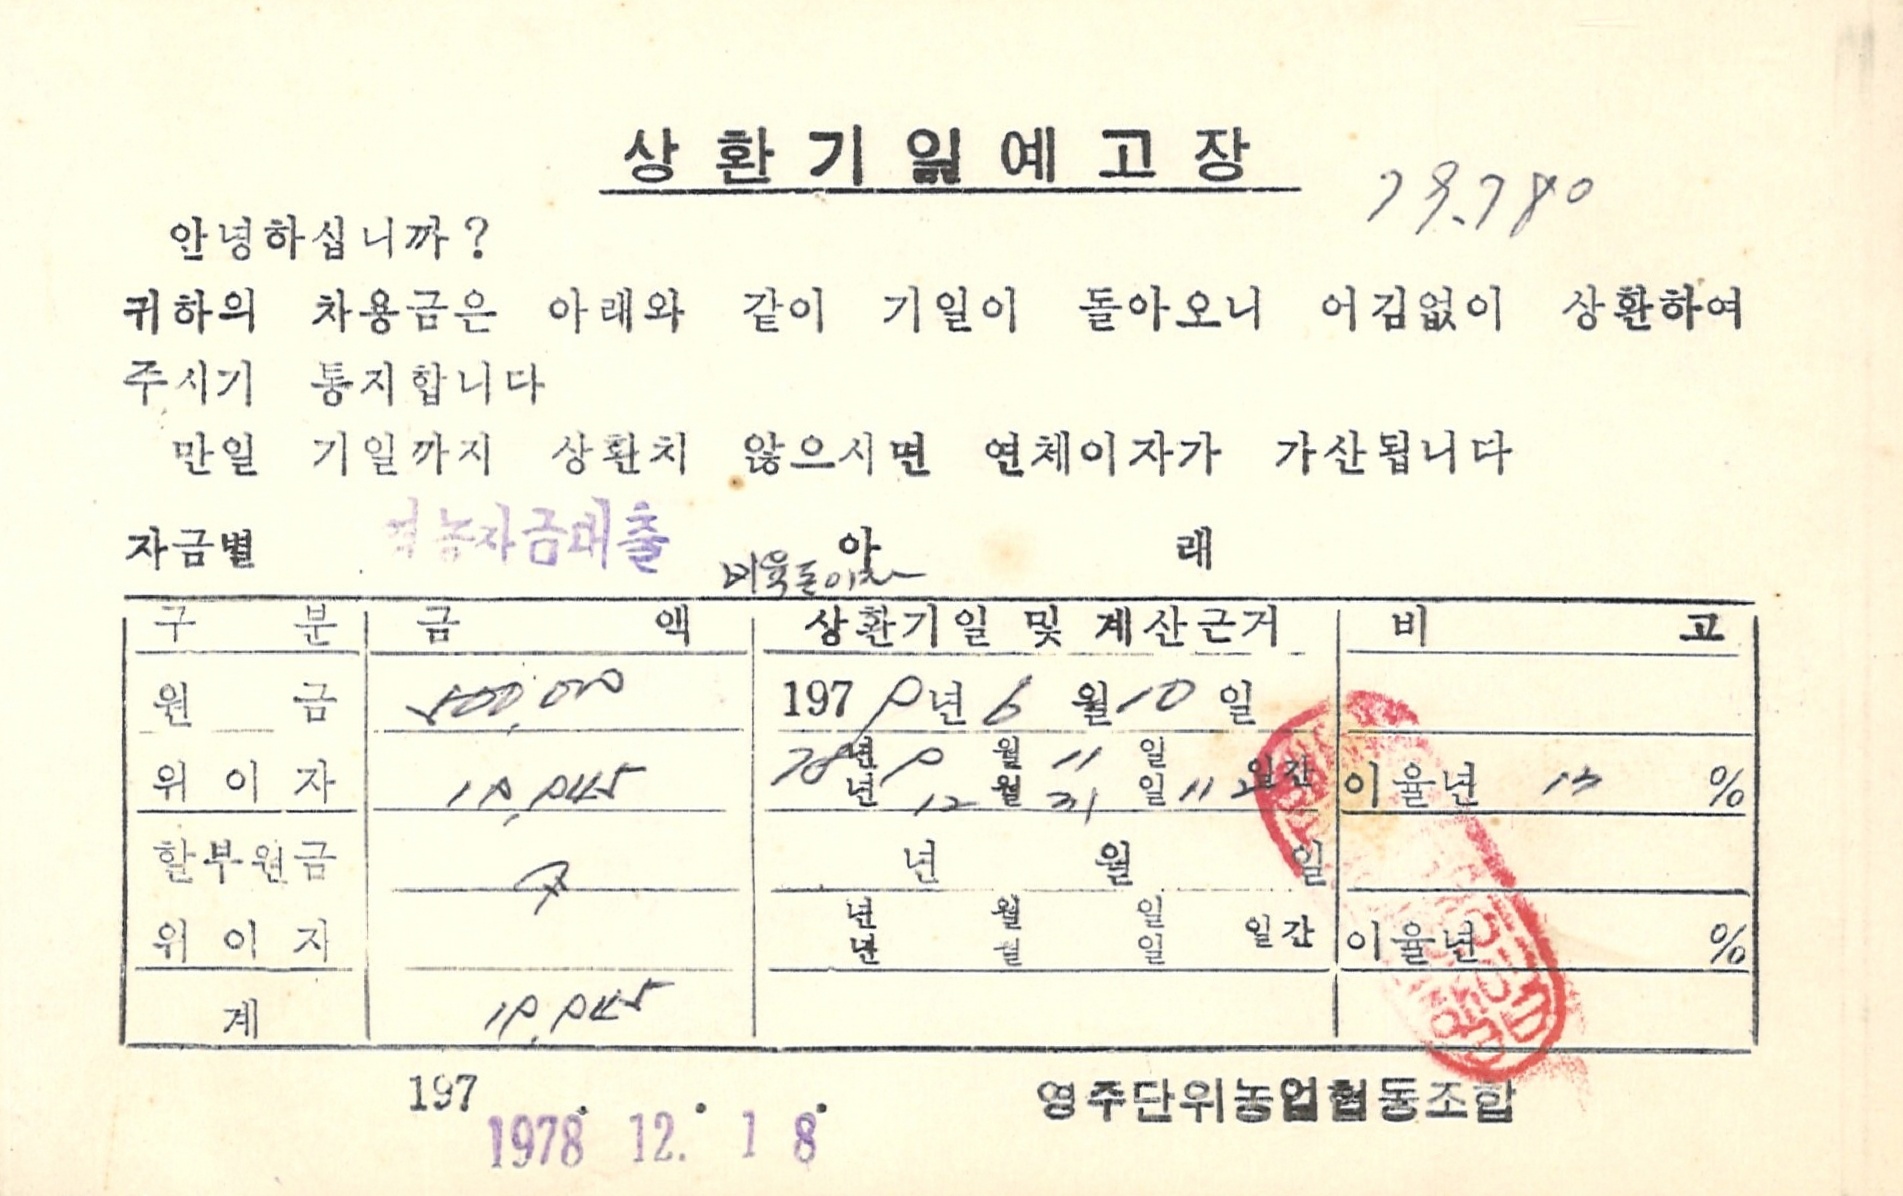 상환기일예고장
79.780
안녕하십니까?
귀하의 차용금은 아래와 같이 기일이 돌아오니 어김없이 상환하여
주시기 통지합니다
만일 기일까지 상환치 않으시면 연체이자가 가산됩니다
자금별 영농자금대출 아 래
비육돈이자
구 분 금 액 상환기일 및 계산근거 비 고
원 금 500,000 1979년 6월 10일
위 이 자 19,945 78년 9월 11일
년 12월 31일 112일간 이율년 13 %
할부원금 년 월 일
위 이 자 년 월 일
년 월 일 일간 이율년 %
계 19,945
197 . . .
1978 12. 18
영주단위농업협동조합